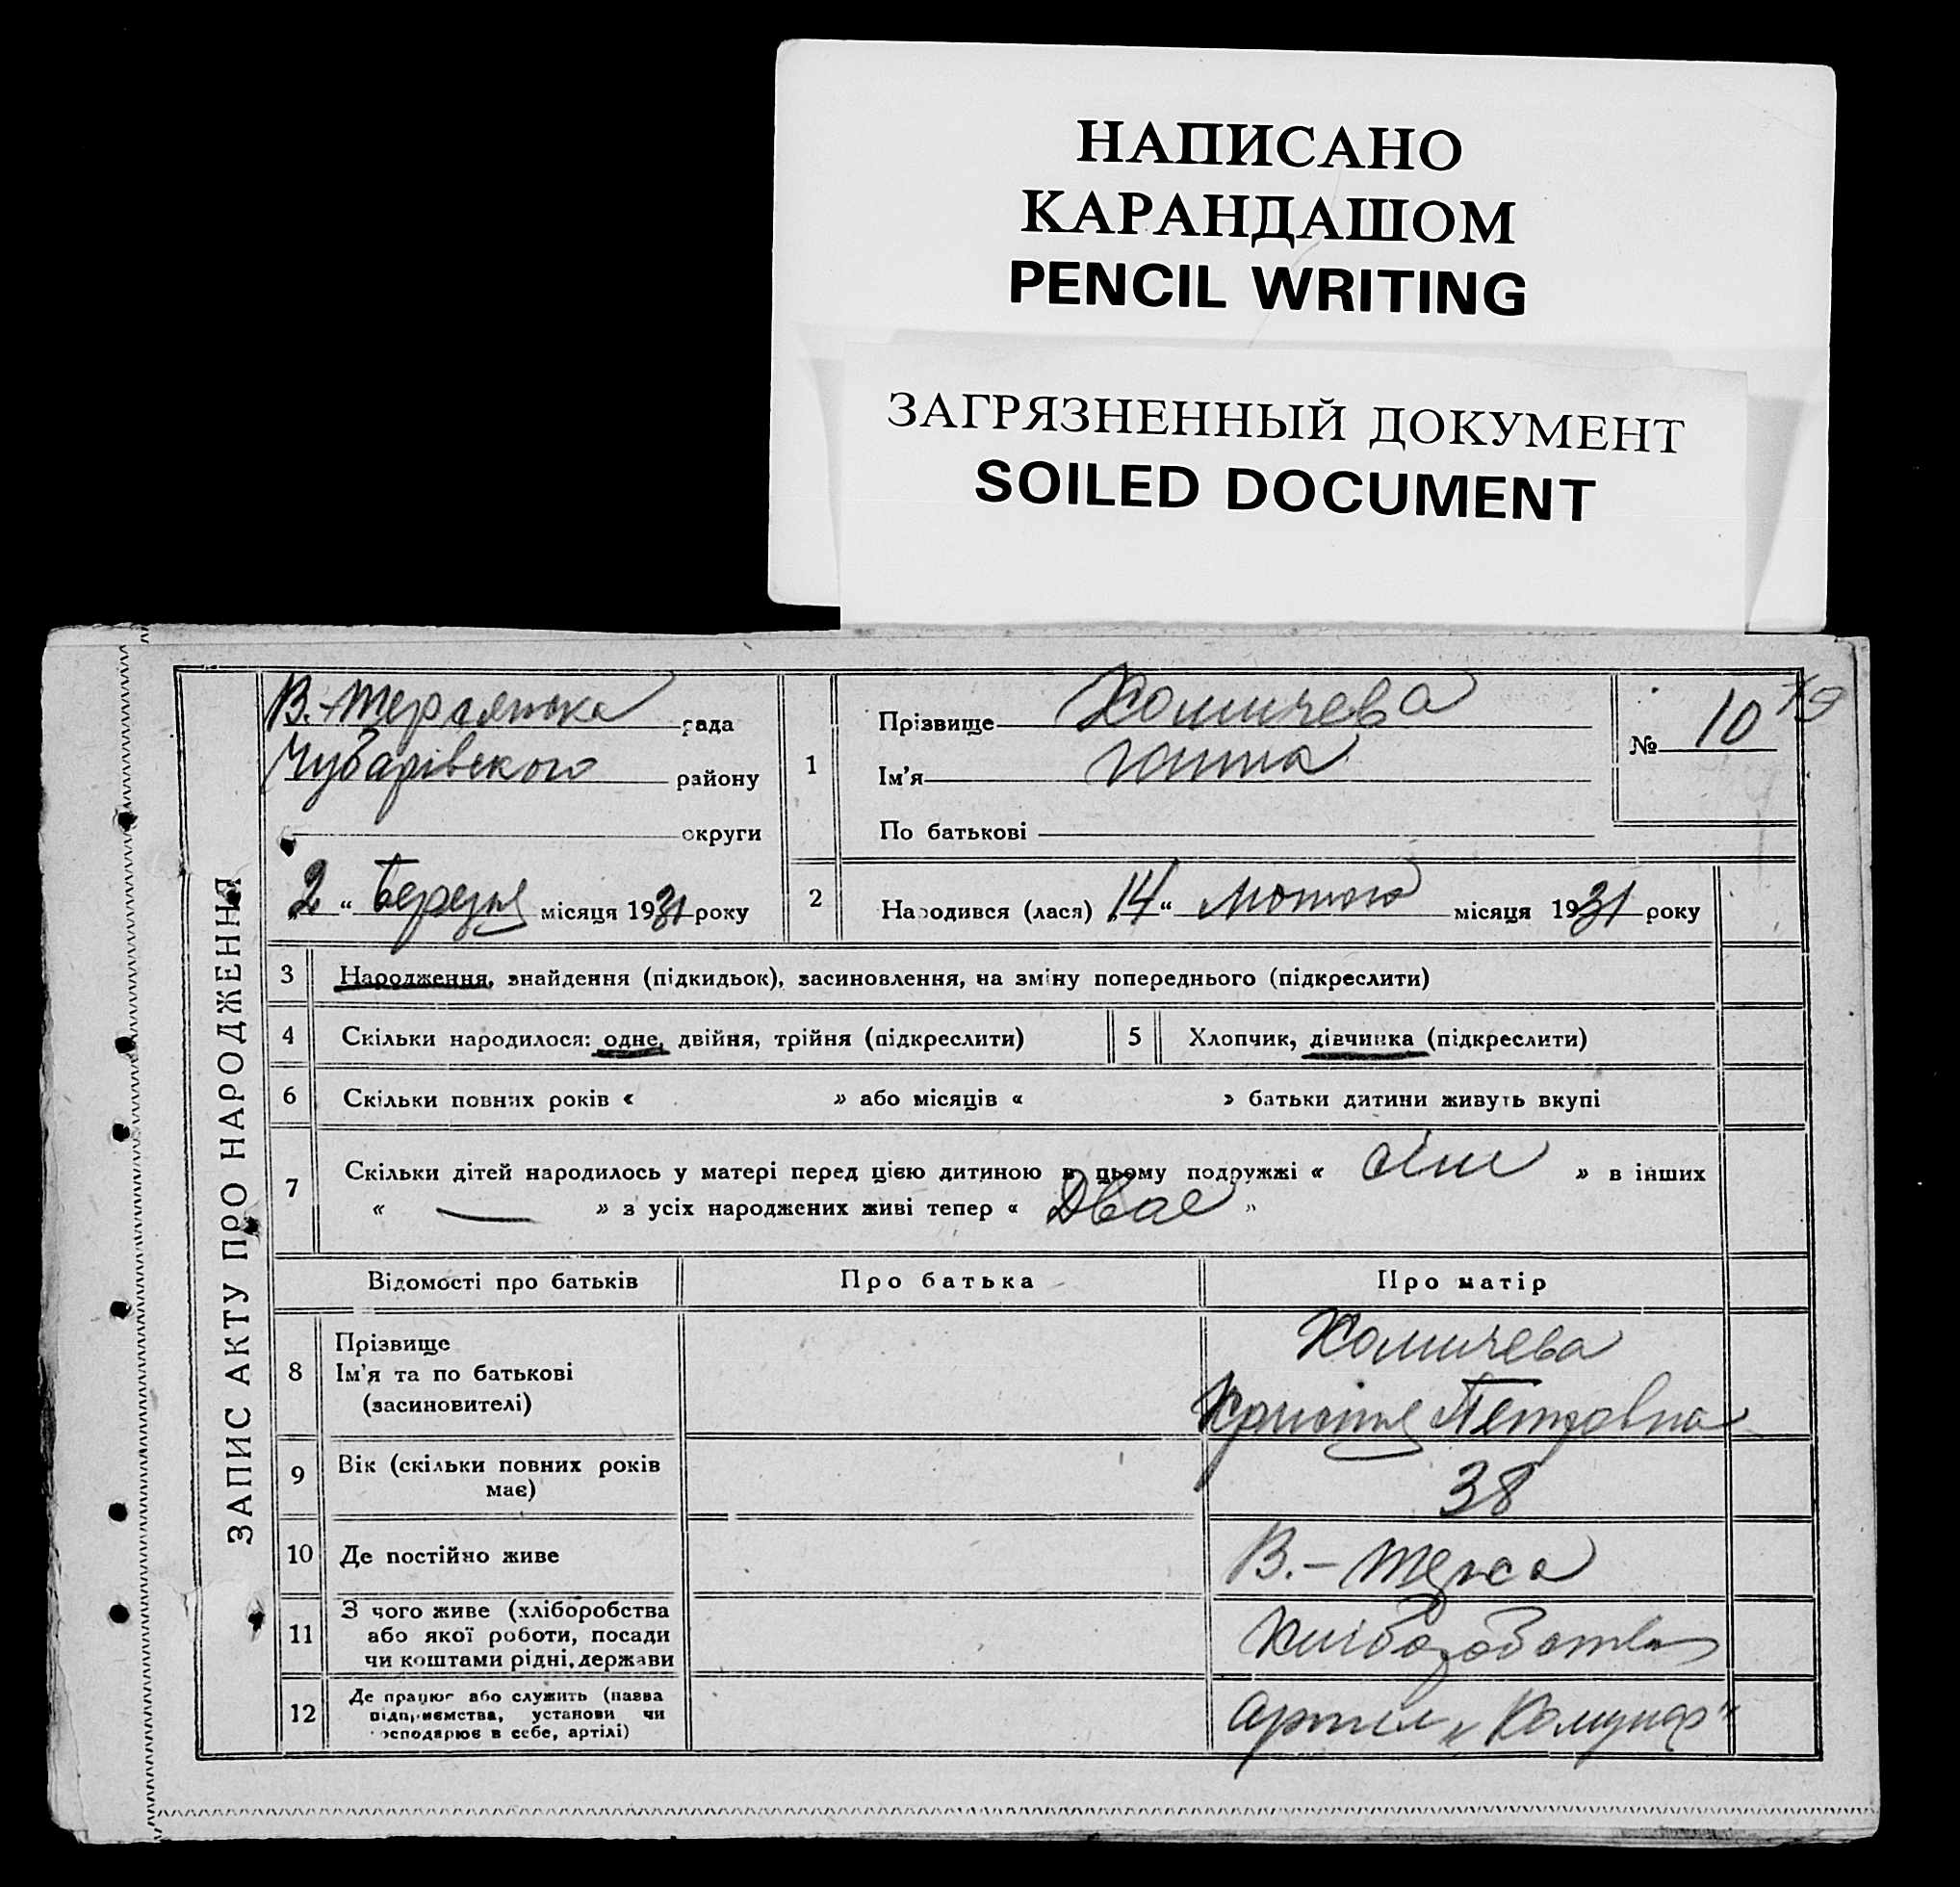 НАПИСАНО
КАРАНДАШОМ
PENCIL WRITING
ЗАГРЯЗНЕННЫЙ ДОКУМЕНТ
SOILED DOCUMENT
ЗАПИС АКТУ ПРО НАРОДЖЕННЯ
В.-Терсянська рада
Чубарівського району
округи
2 " Березня місяця 1931 року
1
Прізвище Хомичева
Ім'я Ганна
По батькові
№ 10
79
2 Народився (лася) 14 " Лютого місяця 1931 року
3 Народження, знайдення (підкидьок), засиновлення, на зміну попереднього (підкреслити)
4 Скільки народилося: одне, двійня, трійня (підкреслити) 5 Хлопчик, дівчинка (підкреслити)
6 Скільки повних років « » або місяців « » батьки дитини живуть вкупі
7 Скільки дітей народилось у матері перед цією дитиною в цьому подружжі « сім » в інших
« — » з усіх народжених живі тепер « Двоє »
Відомості про батьків Про батька Про матір
8 Прізвище
Ім'я та по батькові
(засиновителі)
Хомичева
Христя Петровна
9 Вік (скільки повних років
має)
38
10 Де постійно живе В.-Терса
11 З чого живе (хліборобства
або якої роботи, посади
чи коштами рідні, держави
Хліборобства
12 Де працює або служить (назва
підприємства, установи чи
господарює в себе, артілі)
Артіл „Комунар"